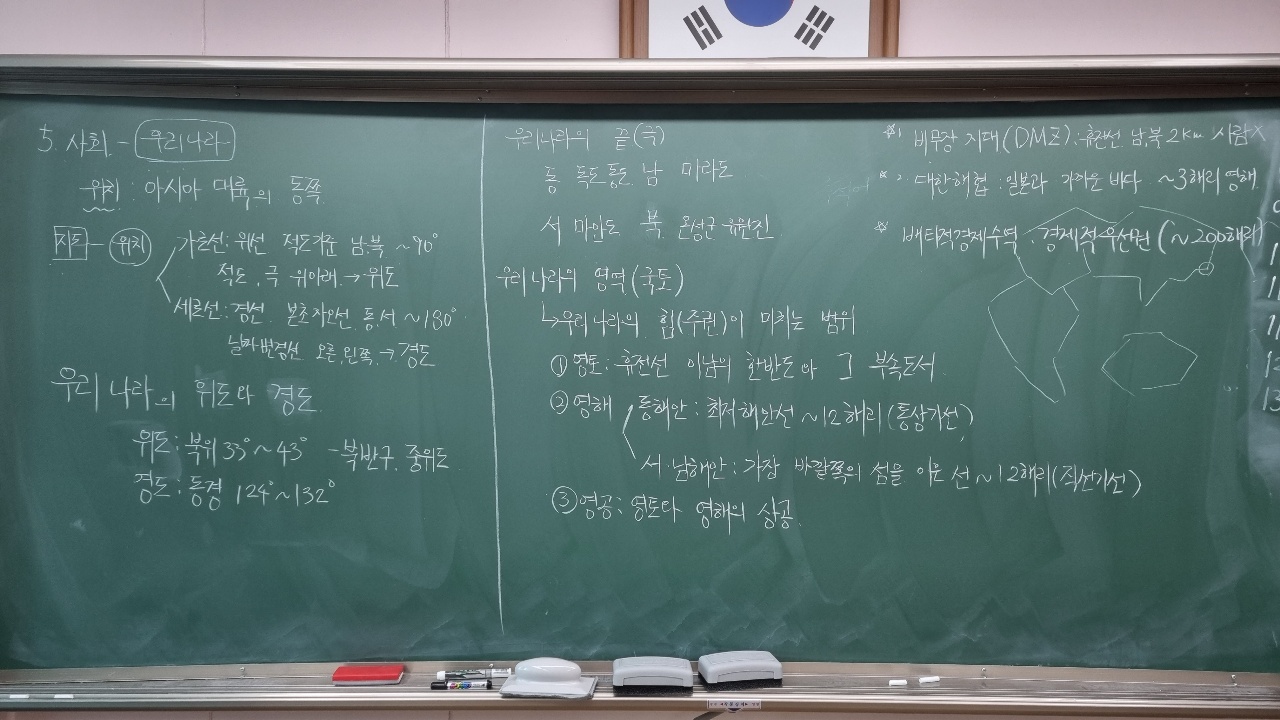 5. 사회 - 우리나라
위치 : 아시아 대륙의 동쪽
지도 - 위치
가로선 : 위선 적도기준 남,북 ~90°
적도, 극 위아래 → 위도
세로선 : 경선 본초자오선 동,서 ~180°
날짜변경선 오른,왼쪽 → 경도
우리나라의 위도와 경도
위도 : 북위 33°~43° - 북반구, 중위도
경도 : 동경 124°~132°
우리나라의 끝(극)
동 독도 동도 남 마라도
서 마안도 북 온성군 유원진
우리나라의 영역(국토)
↳우리나라의 힘(주권)이 미치는 범위
① 영토 : 휴전선 이남의 한반도와 그 부속도서
② 영해
동해안 : 최저해안선 ~12해리(통상기선)
서·남해안 : 가장 바깥쪽의 섬을 이은 선 ~12해리(직선기선)
③ 영공 : 영토와 영해의 상공.
※1 비무장 지대(DMZ) : 휴전선 남,북 2km 사람X
※2 대한해협 : 일본과 가까운 바다 ~3해리 영해.
※ 배타적경제수역 : 경제적 우선권 (~200해리)